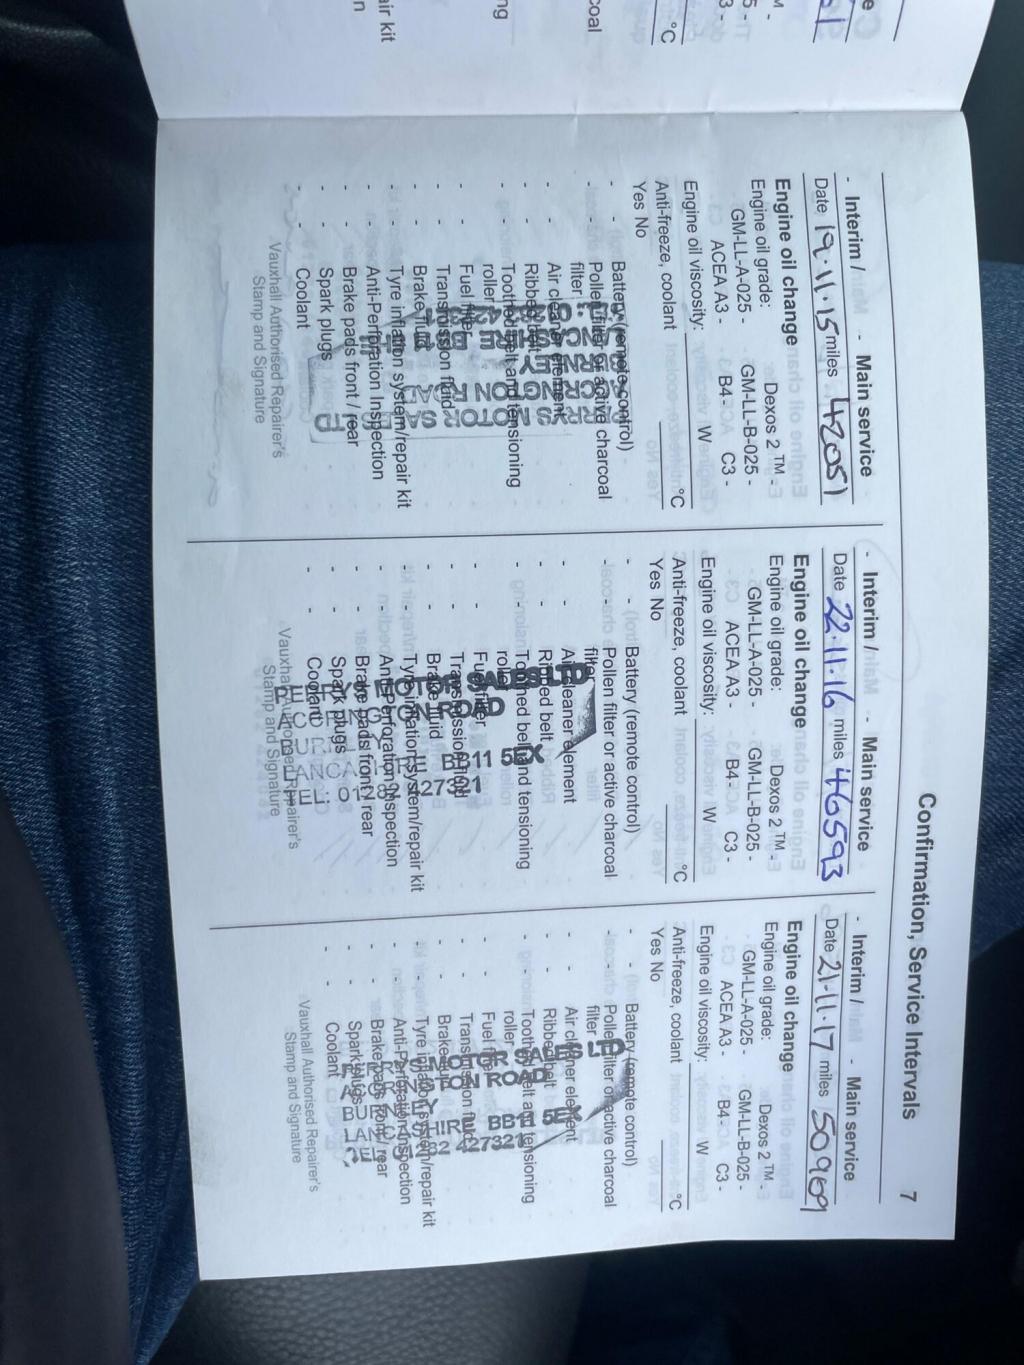 Confirmation, Service Intervals 7
- Interim / - Main service
Date 19.11.15 miles 42051
Engine oil change
Engine oil grade: Dexos 2 ™ -
GM-LL-A-025 - GM-LL-B-025 -
ACEA A3 - B4 - C3 -
Engine oil viscosity: W
Anti-freeze, coolant °C
Yes No
- - Battery (remote control)
- - Pollen filter or active charcoal
filter
- - Air cleaner element
- - Ribbed belt
- - Toothed belt and tensioning
roller
- - Fuel filter
- - Transmission fluid
- - Brake fluid
- - Tyre inflation system/repair kit
- - Anti-Perforation Inspection
- - Brake pads front / rear
- - Spark plugs
- - Coolant
Vauxhall Authorised Repairer's
Stamp and Signature
- Interim / - Main service
Date 22.11.16 miles 46593
Engine oil change
Engine oil grade: Dexos 2 ™ -
GM-LL-A-025 - GM-LL-B-025 -
ACEA A3 - B4 - C3 -
Engine oil viscosity: W
Anti-freeze, coolant °C
Yes No
- - Battery (remote control)
- - Pollen filter or active charcoal
filter
- - Air cleaner element
- - Ribbed belt
- - Toothed belt and tensioning
roller
- - Fuel filter
- - Transmission fluid
- - Brake fluid
- - Tyre inflation system/repair kit
- - Anti-Perforation Inspection
- - Brake pads front / rear
- - Spark plugs
- - Coolant
Vauxhall Authorised Repairer's
Stamp and Signature
MOTOR SALES LTD
TON ROAD
BB11 5EX
- Interim / - Main service
Date 21.11.17 miles 50969
Engine oil change
Engine oil grade: Dexos 2 ™ -
GM-LL-A-025 - GM-LL-B-025 -
ACEA A3 - B4 - C3 -
Engine oil viscosity: W
Anti-freeze, coolant °C
Yes No
- - Battery (remote control)
- - Pollen filter or active charcoal
filter
- - Air cleaner element
- - Ribbed belt
- - Toothed belt and tensioning
roller
- - Fuel filter
- - Transmission fluid
- - Brake fluid
- - Tyre inflation system/repair kit
- - Anti-Perforation Inspection
- - Brake pads front / rear
- - Spark plugs
- - Coolant
Vauxhall Authorised Repairer's
Stamp and Signature
MOTOR SALES LTD
TON ROAD